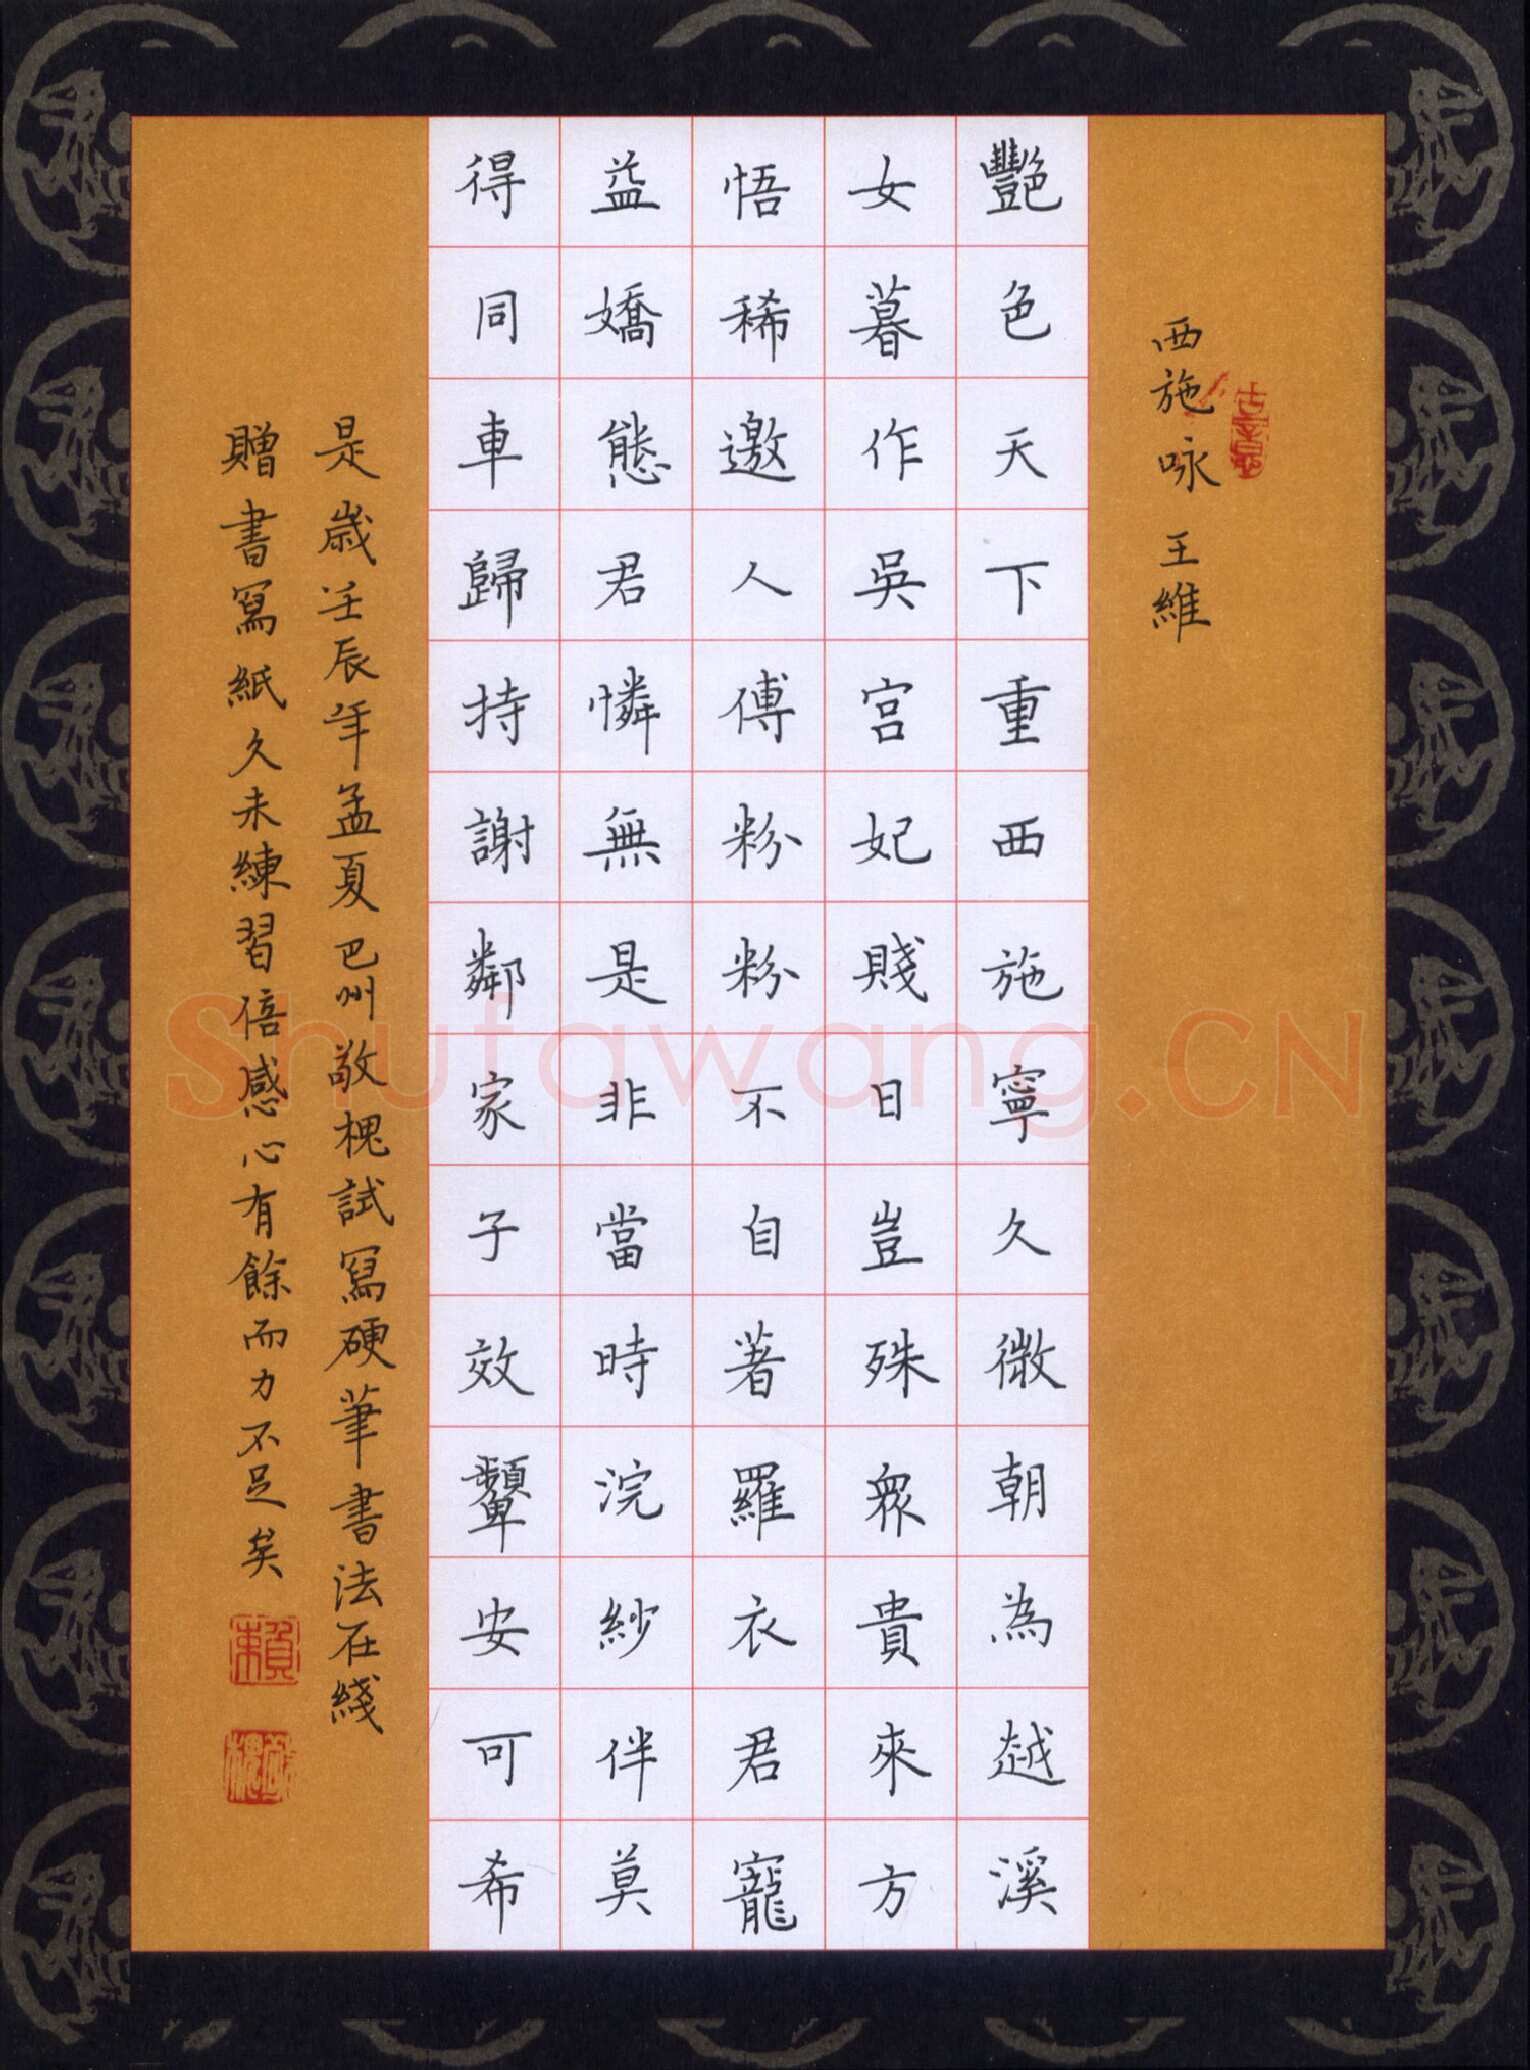 西施咏 王維
艷色天下重西施寧久微朝為越溪
女暮作吳宮妃賤日豈殊眾貴來方
悟稀邀人傅粉粉不自著羅衣君寵
益嬌態君憐無是非當時浣紗伴莫
得同車歸持謝鄰家子效顰安可希
是歲壬辰年孟夏巴州敬槐試寫硬筆書法在綫
贈書寫紙久未練習倍感心有餘而力不足矣
Shufawang.CN